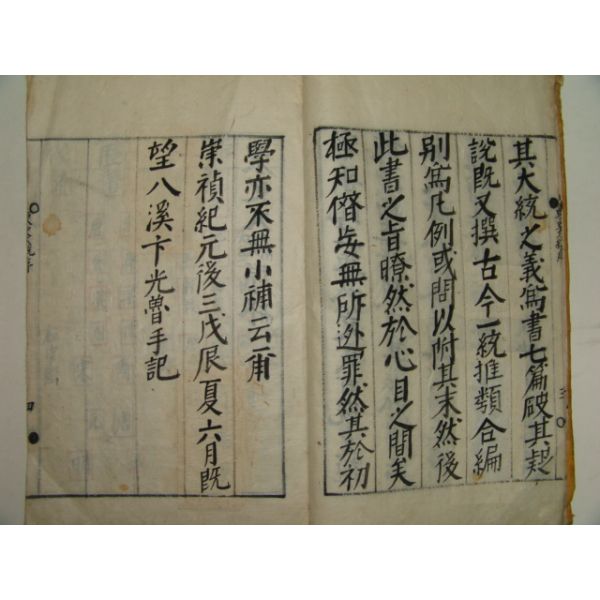 其大統之義爲書七篇破其疑
說旣又撰古今一統推類合編
別爲凡例或問以附其末然後
此書之旨瞭然於心目之間矣
極知僭妄無所逃罪然其於初
學亦不無小補云爾
崇禎紀元後三戊辰夏六月旣
望八溪卞光魯手記
三
四